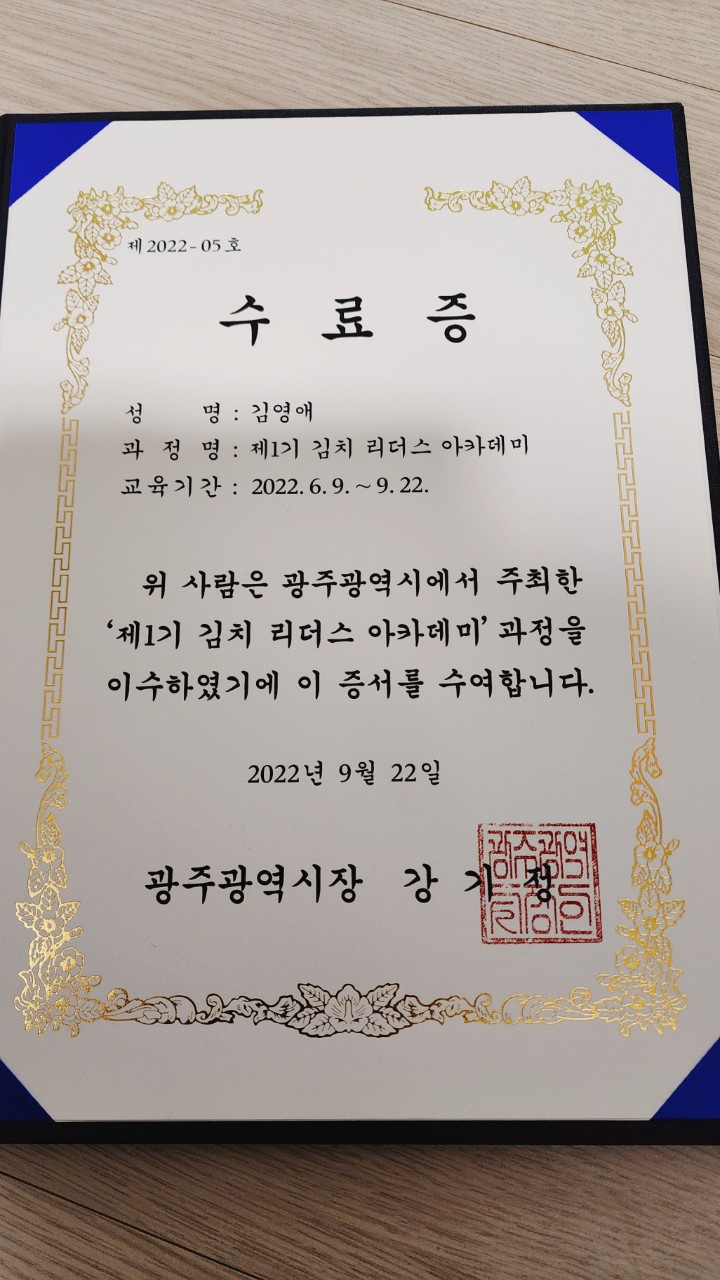 제 2022 - 05 호
수 료 증
성 명 : 김영애
과 정 명 : 제1기 김치 리더스 아카데미
교육기간 : 2022. 6. 9. ~ 9. 22.
위 사람은 광주광역시에서 주최한
‘제1기 김치 리더스 아카데미’ 과정을
이수하였기에 이 증서를 수여합니다.
2022년 9월 22일
광주광역시장 강 기 정
광주광역
시장인